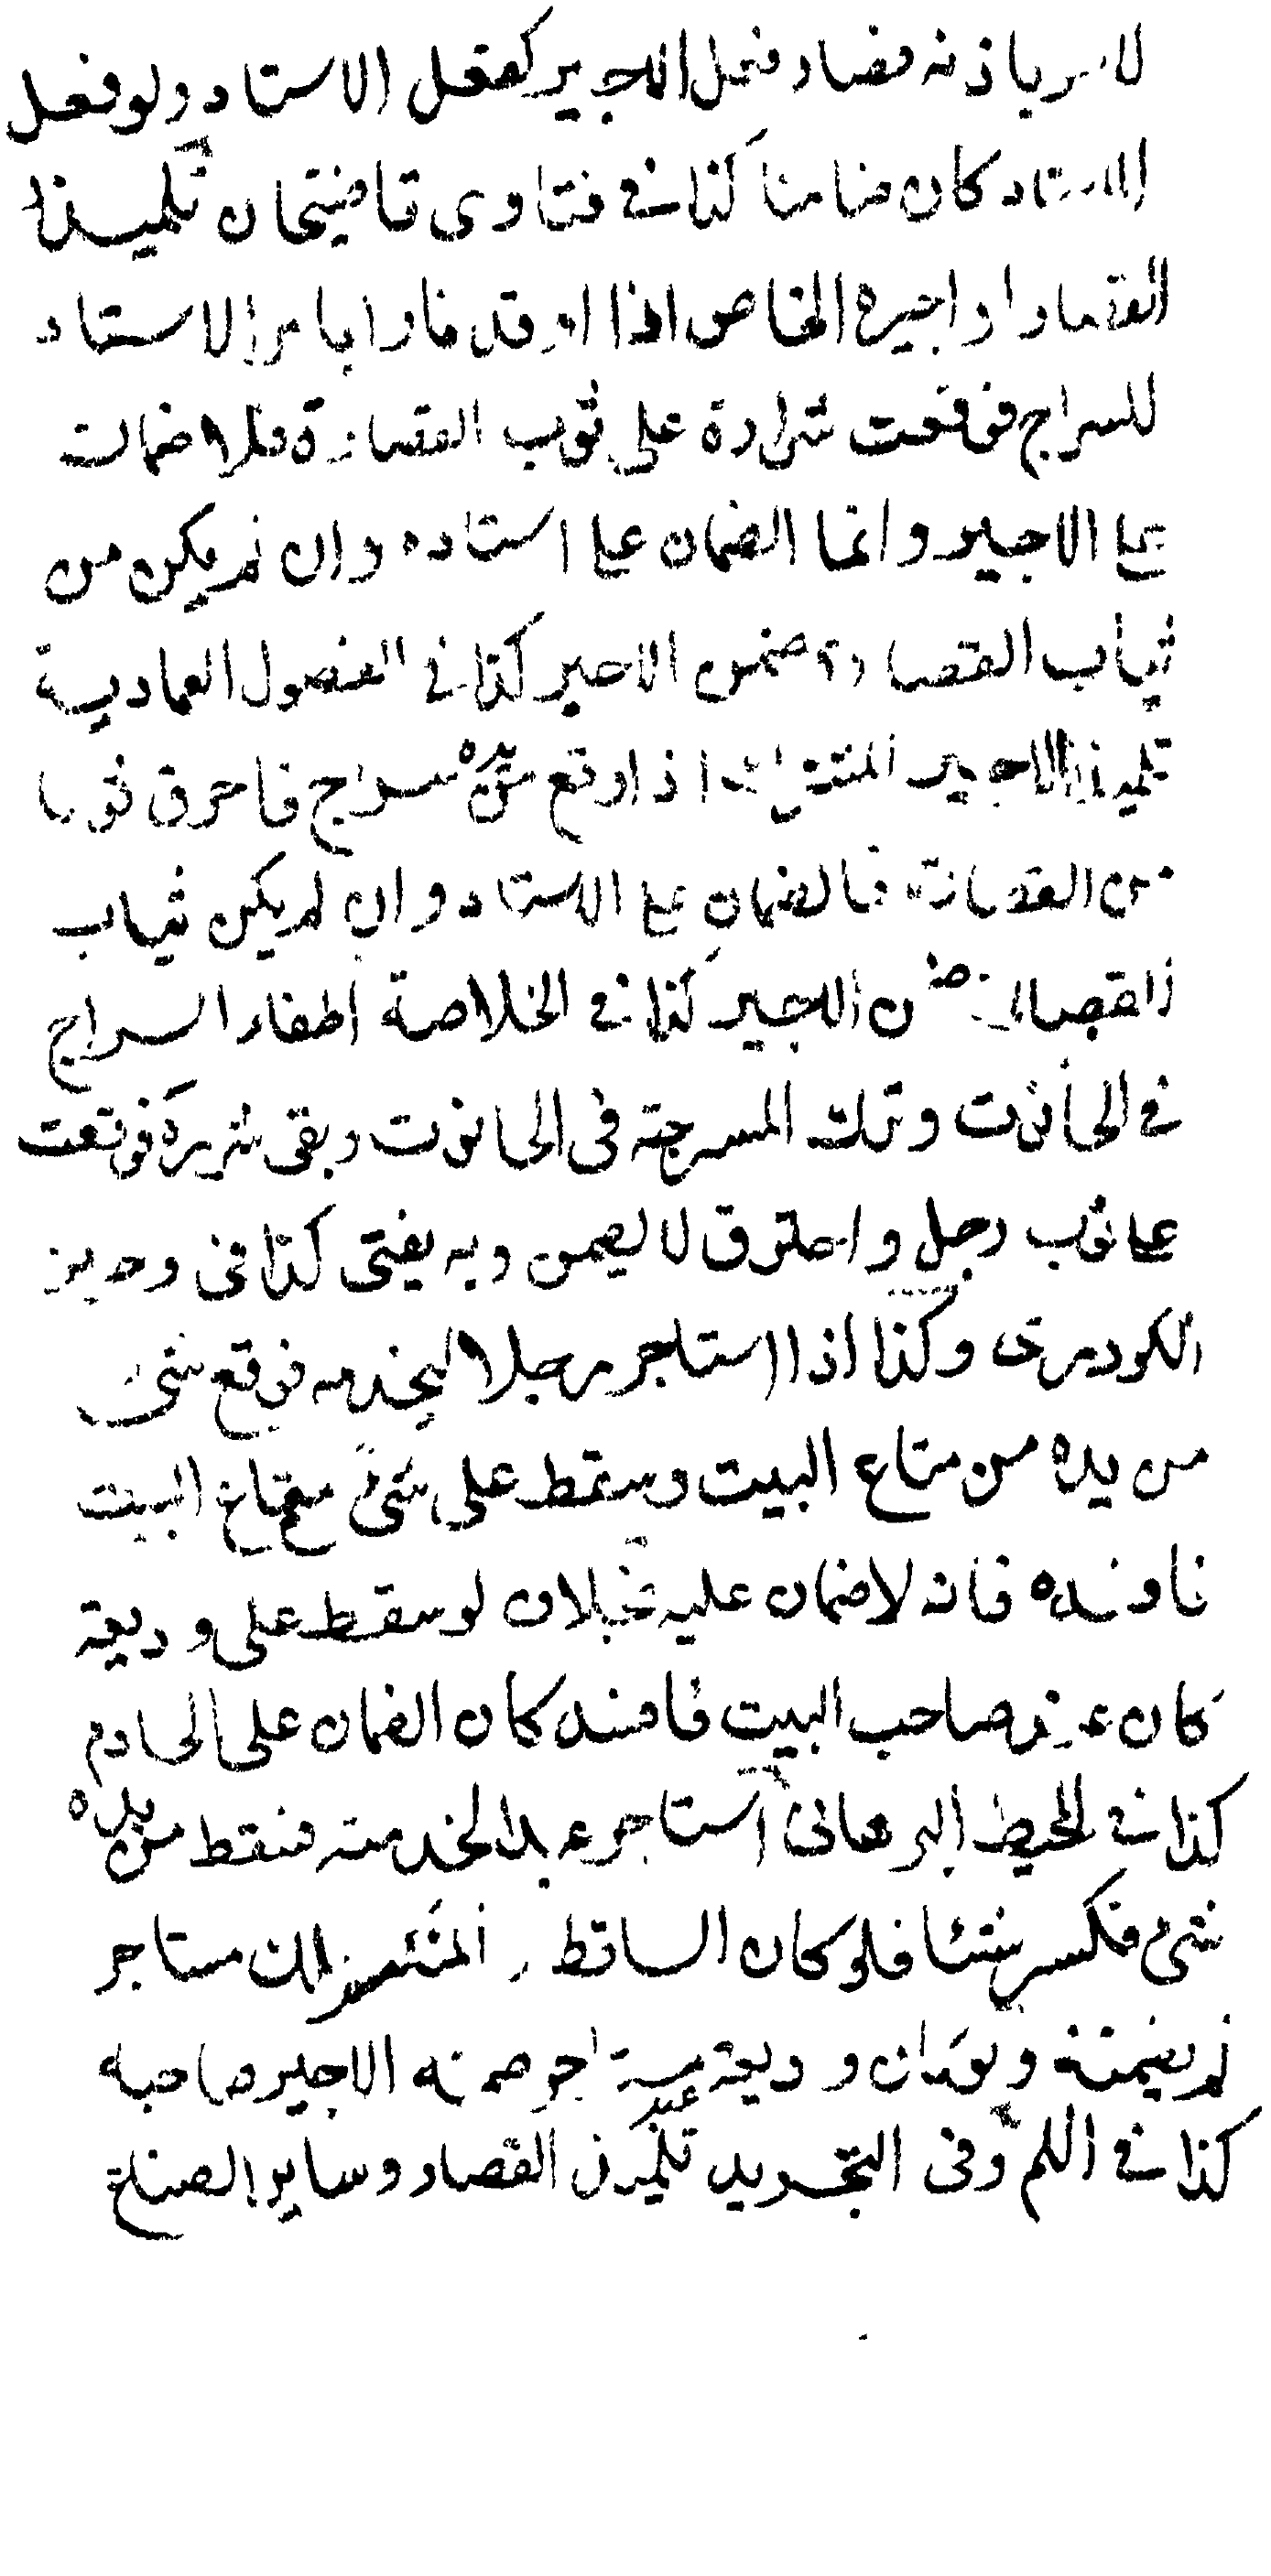 لا باذنه فصار فعل الاجير كفعل الاستاد ولو فعل
الاستاد كان ضامنا كذا في فتاوى قاضيخان تلميذ
القصار او اجيره الخاص اذا اوقد نارا بامر الاستاد
للسراج فوقعت شرارة على ثوب القصارة فلا ضمان
على الاجير وانما الضمان على استاده وان لم يكن من
ثياب القصارة ضمن الاجير كذا في الفصول العمادية
تلميذ الاجير المشترك اذا وقع من يده سراج فاحرق ثوبا
من القصارة فالضمان على الاستاد وان لم يكن ثياب
القصارة ضمن الاجير كذا في الخلاصة اطفاء السراج
في الحانوت وترك المسرجة في الحانوت وبقى شررة فوقعت
على ثوب رجل واحترق لا يضمن وبه يفتى كذا فى وجيز
الكردرى وكذا اذا استاجر رجلا ليخدمه فوقع شئ
من يده من متاع البيت وسقط على شئ من متاع البيت
فافسده فانه لا ضمان عليه بخلاف لو سقط على وديعة
كان عند صاحب البيت فافسد كان الضمان على الخادم
كذا في المحيط البرهانى استاجر عبدا لخدمته فسقط من يده
شئ فكسر شئا فلو كان الساقط المنكسر ملك مستاجر
لم يضمنه ولو كان وديعة عند مستاجر ضمنه الاجير صاحبه
كذا في وفى التجريد تلميذ القصار وساير الصناع